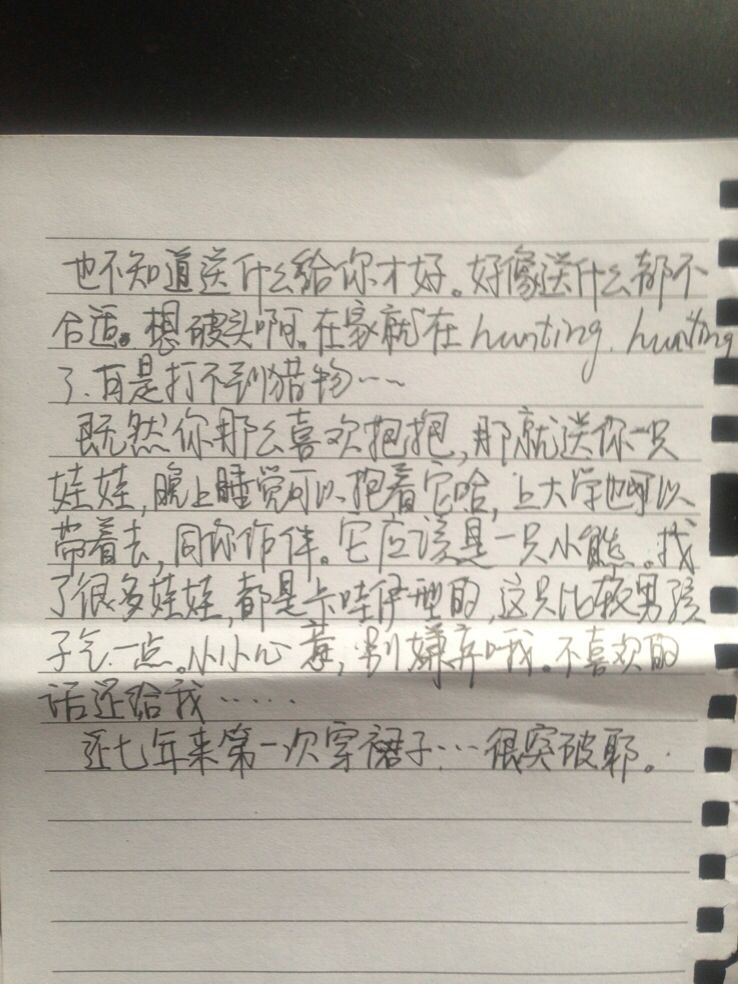 也不知道送什么给你才好。好像送什么都不
合适。想破头啊。在家就在 hunting. hunting
了.可是打不到猎物……
既然你那么喜欢抱抱,那就送你一只
娃娃,晚上睡觉可以抱着它哈,上大学也可以
带着去,同你作伴。它应该是一只小熊。找
了很多娃娃,都是卡哇伊型的,这只比较男孩
子气一点。小小心意,别嫌弃哦。不喜欢的
话还给我……
近七年来第一次穿裙子…很突破耶。